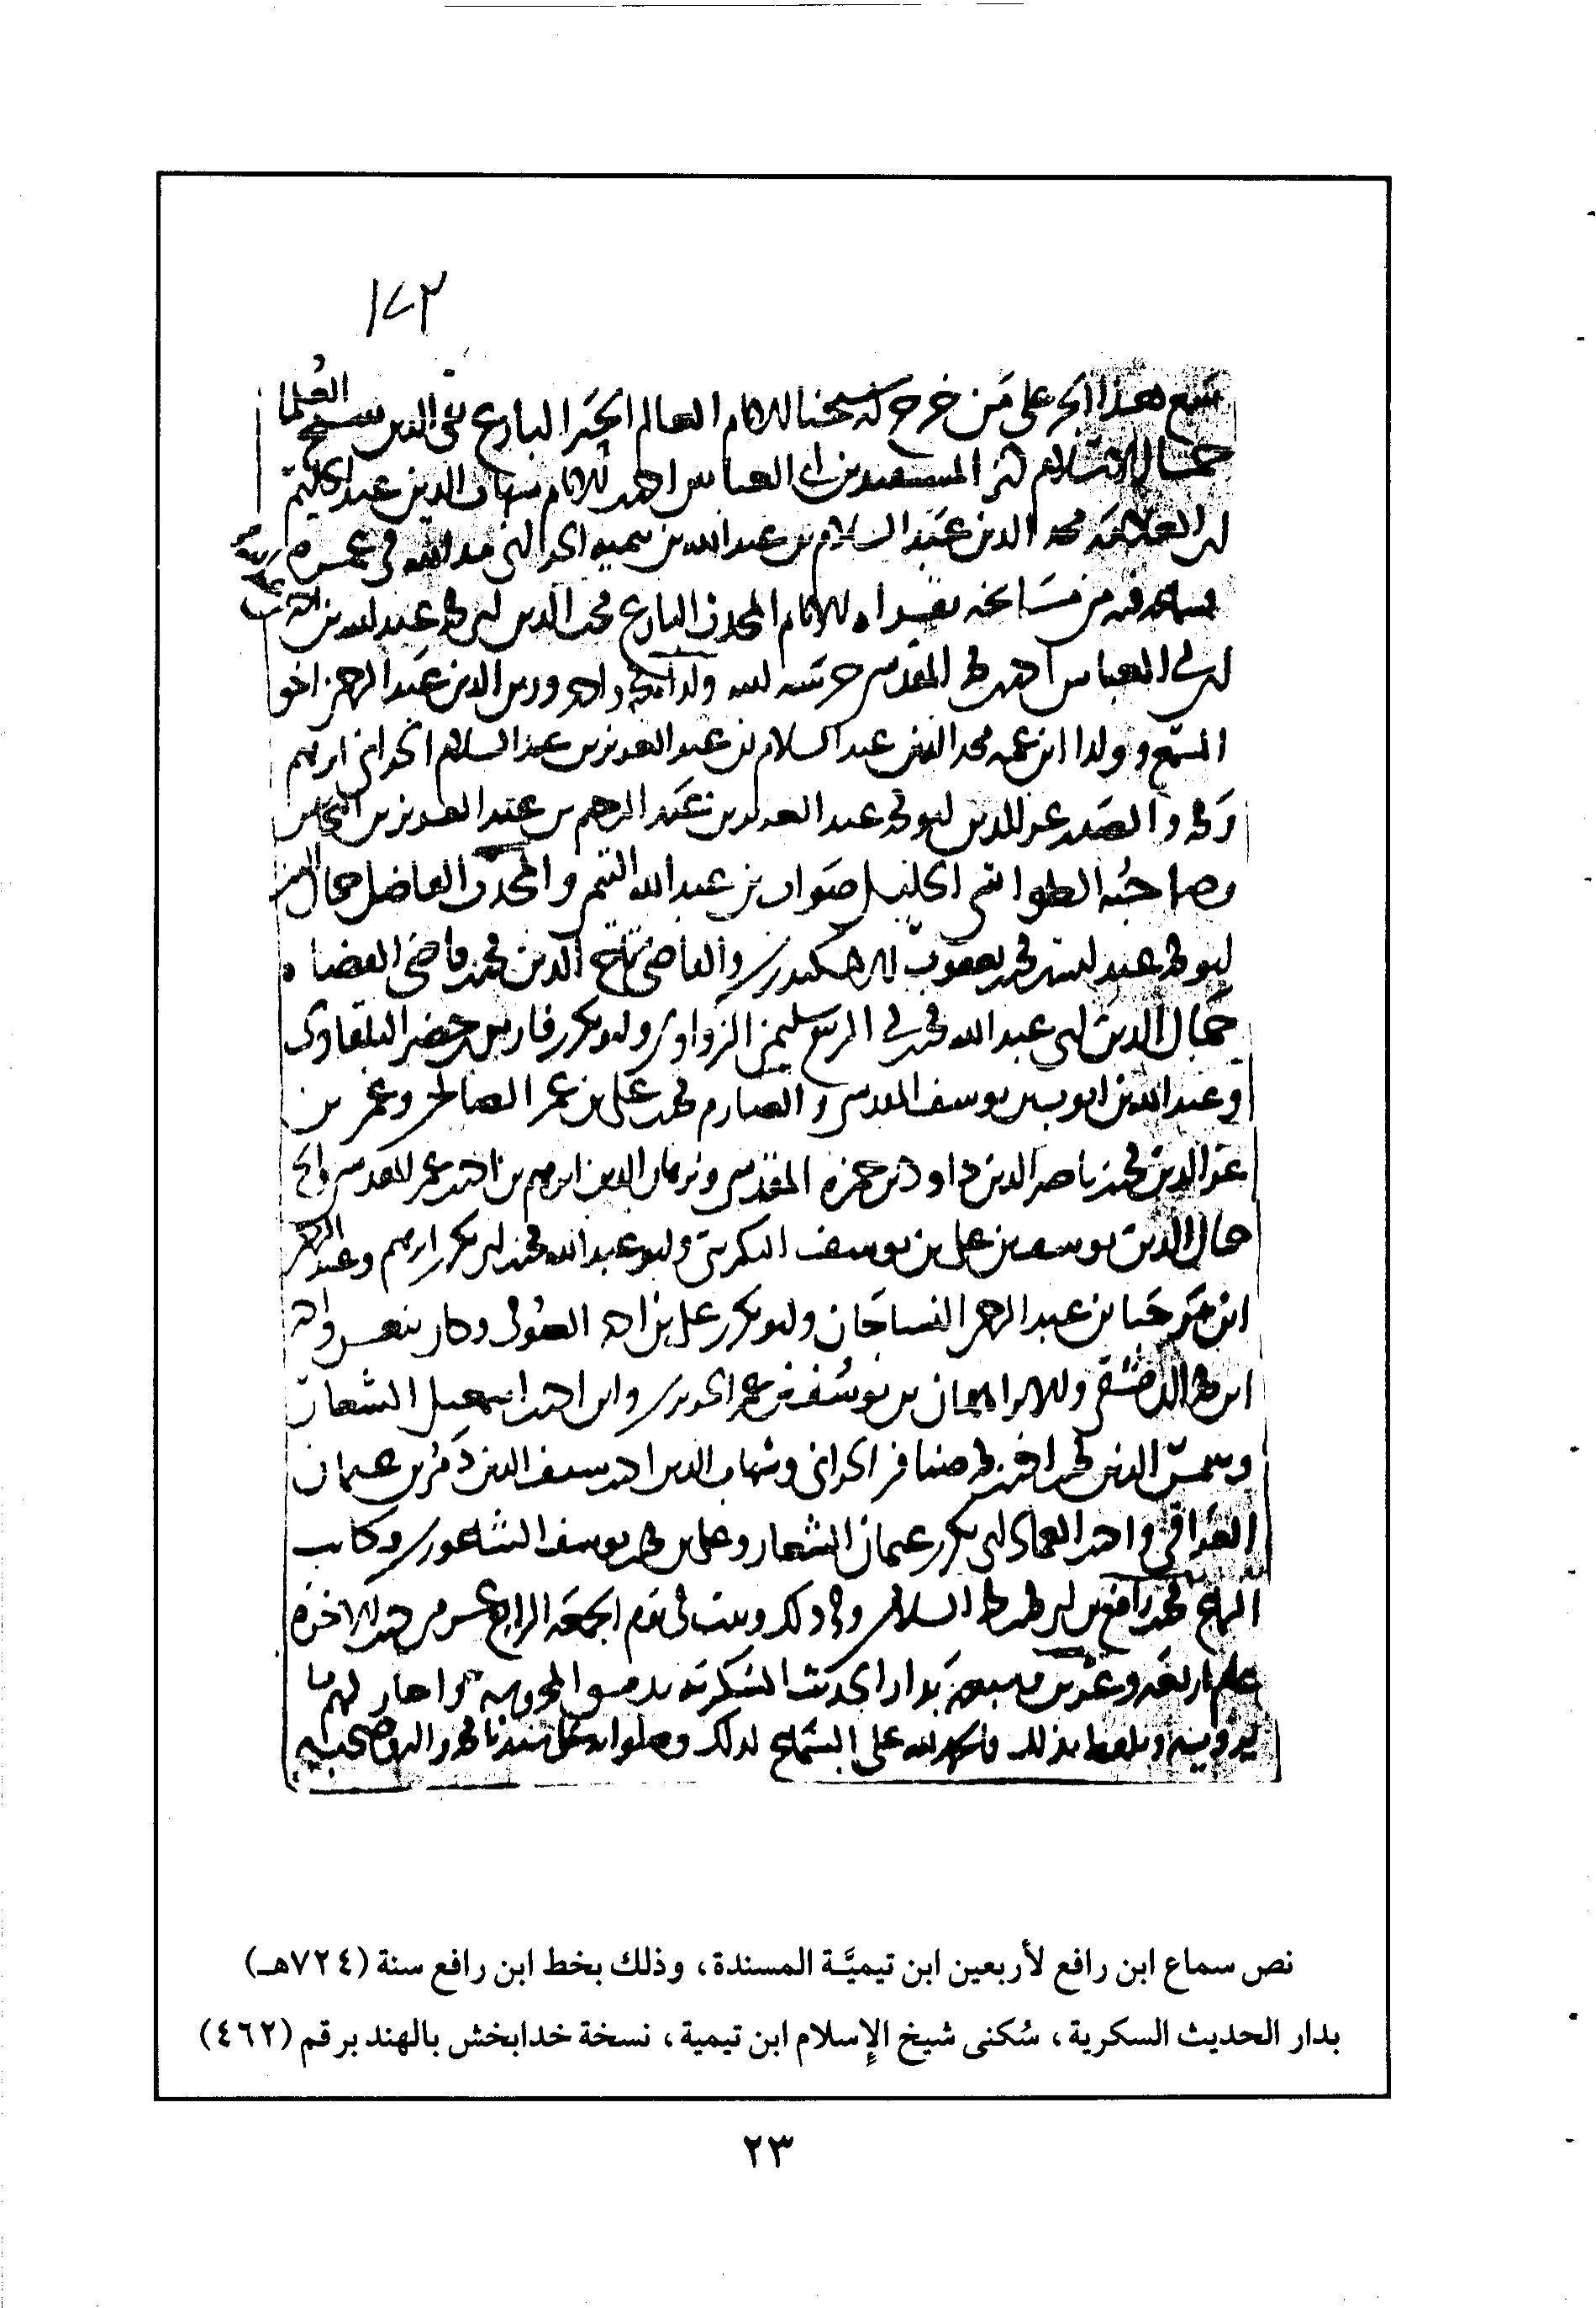 ١٤٣
سمع هذا الجز على من خرج له شيخنا الامام العالم الحبر البارع تقى الدين شيخ العُلما
جمال الاسلام المسندين ابى العباس احمد الامام شهاب الدين عبد الحليم
العلامه مجد الدين عبد السلام بن عبد الله بن تيميه الحرانى مد الله فى عمره
بسماعه فيه من مشايخه بقراه الامام المحدث البارع محب الدين ابى محمد عبد الله بن احمد
ابى العباس احمد المقدسى حرسه الله ولداه محمد واحمد وزين الدين عبد الرحمن اخو
المسمع وولدا ابن عمه مجد الدين عبد السلام بن عبد العزيز بن عبد السلام الحرانى ابرهيم
ومحمد والصدر عز الدين ابو محمد عبد العزيز بن عبد الرحيم بن عبد العزيز بن النحاس
وصاحبه الطواشى الجليل صواب بن عبد الله والمحدث الفاضل جمال الدين
ابو محمد عبد الله بن محمد يعقوب الاسكندرى والقاضى تاج الدين محمد قاضى القضاه
جمال الدين ابى عبد الله محمد بن ابى الربيع سليمن الزواوى وابو بكر بن فارس بن خضر البلقاوى
وعبد الله بن ايوب بن يوسف المقدسى والصارم محمد على بن عمر الصالحى وعمر بن
عز الدين محمد ناصر الدين داود بن حمزه المقدسى وبرهان الدين ابرهيم بن احمد عمر المقدسى
جمال الدين يوسف بن على بن يوسف التكريتى وابو عبد الله محمد ابى بكر ابرهيم وعبد الرحمن
ابن مرحبا بن عبد الرحمن النساجان وابو بكر على بن احمد الصوفى
الدمشقى يوسف بن عمر الحريرى وابن احمد اسمعيل الشعار
وشمس الدين محمد احمد الحرانى وشهاب الدين احمد سيف الدين بن عثمان
العراقى واحمد العماد ابى بكر عثمان الشعار وعلى بن محمد يوسف الشاغورى وكاتب
السماع محمد رافع بن ابى محمد السلامى وصح ذلك وثبت فى يوم الجمعه الرابع عشر من جمدى الاخره
عام اربعه وعشرين وسبعمايه بدار الحديث السكريه بدمشق المحروسه واجاز لهم ما
يرويه وتلفظ بذلك والحمد لله على السماع لذلك وصلواته على سيدنا محمد واله وصحبه
نص سماع ابن رافع لأربعين ابن تيميَّة المسندة، وذلك بخط ابن رافع سنة (٧٢٤هـ)
بدار الحديث السكرية، سُكنى شيخ الإسلام ابن تيمية، نسخة خدابخش بالهند برقم (٤٦٢)
٢٣